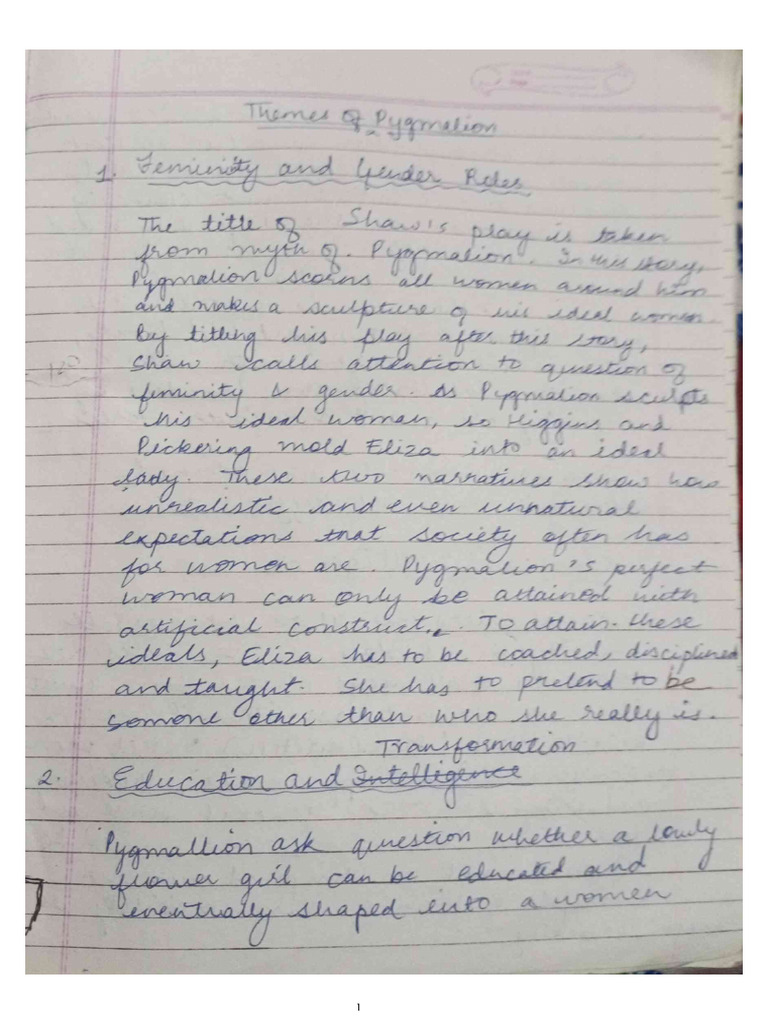 Themes of Pygmalion
1. Feminity and Gender Roles
The title of Shaw's play is taken
from myth of. Pygmalion. In this story,
Pygmalion scorns all women around him
and makes a sculpture of his ideal women.
By titling his play after this story,
Shaw calls attention to question of
feminity & gender. As Pygmalion sculpts
his ideal woman, so Higgins and
Pickering mold Eliza into an ideal
lady. These two narratives show how
unrealistic and even unnatural
expectations that society often has
for women are. Pygmalion's perfect
woman can only be attained with
artificial construct. To attain these
ideals, Eliza has to be coached, disciplined
and taught. She has to pretend to be
somone other than who she really is.
Transformation
2. Education and Intelligence
Pygmallion ask question whether a lowly
flower girl can be educated and
eventrally shaped into a women
1